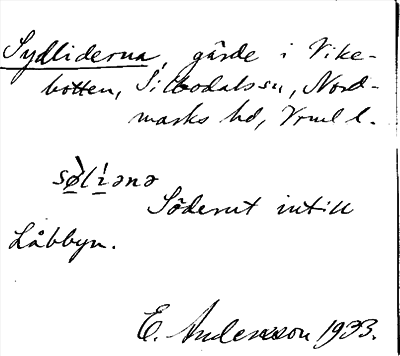 Sydliderna, gärde i Vike-
botten, Silbodals sn, Nord-
marks hd, Vrml l.
sø̀lìənə
Söderut intill
Låbbyn.
E. Andersson 1933.